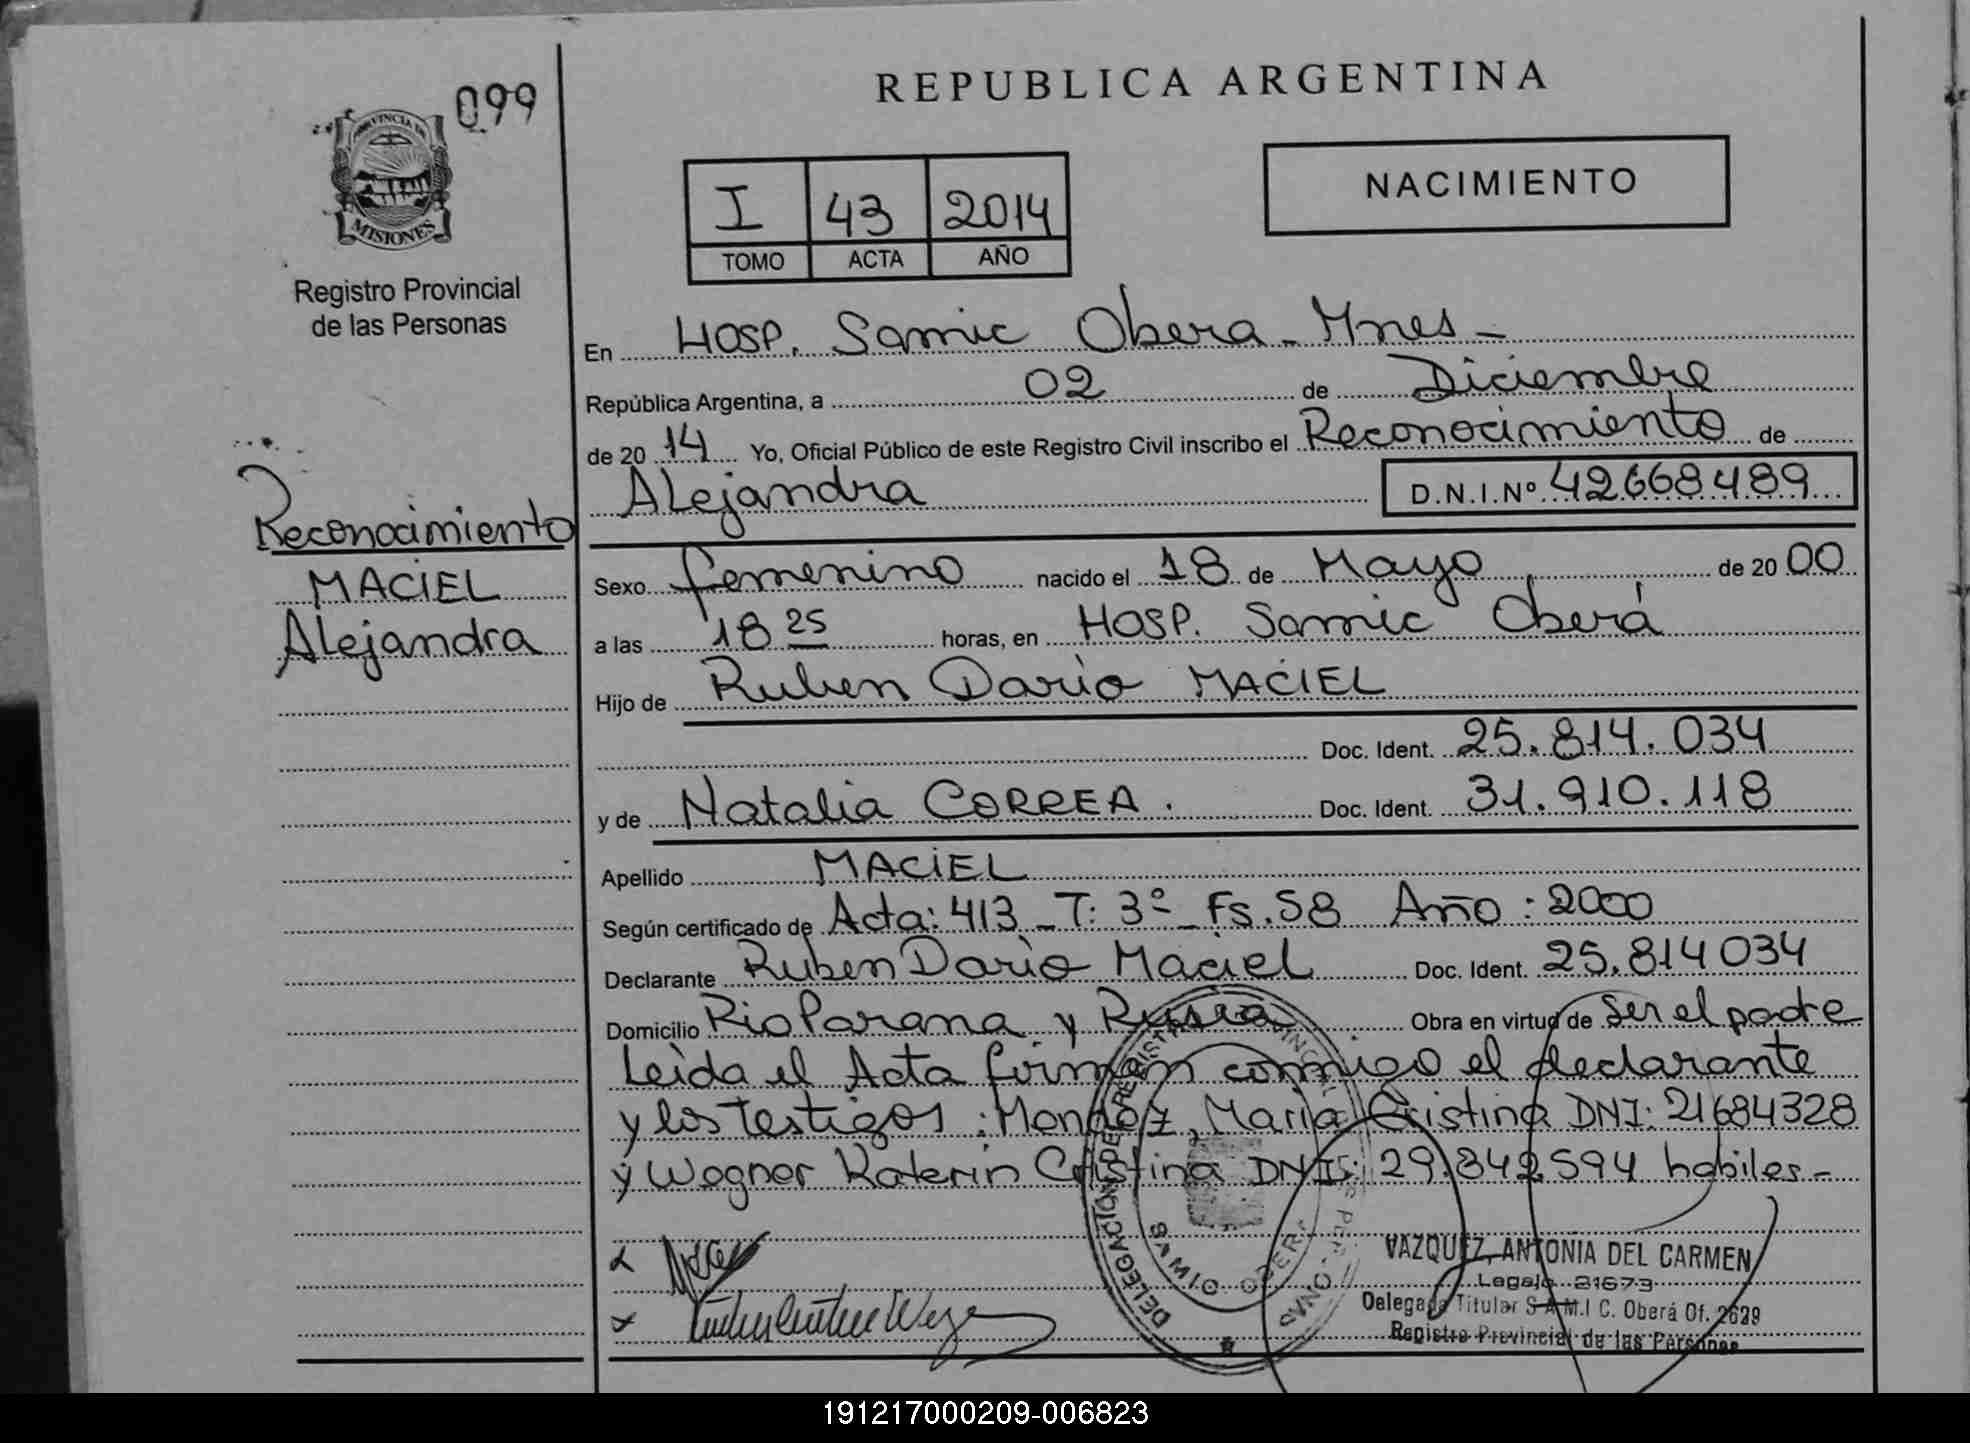 099
REPUBLICA ARGENTINA
PROVINCIA DE
MISIONES
Registro Provincial
de las Personas
I 43 2014
TOMO ACTA AÑO
NACIMIENTO
En Hosp. Samic Obera - Mnes -
República Argentina, a 02 de Diciembre
de 20 14 Yo, Oficial Público de este Registro Civil inscribo el Reconocimiento de
Alejandra D.N.I.Nº 42668489
Reconocimiento
MACIEL
Alejandra
Sexo femenino nacido el 18 de Mayo de 20 00
a las 18 25 horas, en Hosp. Samic Oberá
Hijo de Ruben Dario MACIEL
Doc. Ident. 25.814.034
y de Natalia CORREA. Doc. Ident. 31.910.118
Apellido MACIEL
Según certificado de Acta: 413 - T: 3º - Fs. 58 Año: 2000
Declarante Ruben Dario Maciel Doc. Ident. 25.814034
Domicilio Rio Parana y Rusia Obra en virtud de Ser el padre
Leida el Acta firman conmigo el declarante
y los testigos: Mendez, Maria Cristina DNI: 21684328
y Wagner Katerin Cristina DNI: 29.842594 habiles.-
VAZQUEZ, ANTONIA DEL CARMEN
Legajo 21673
Delegada Titular S.A.M.I C. Oberá Of. 2629
Registro Provincial de las Personas
191217000209-006823